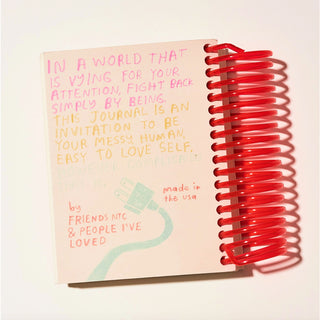 IN A WORLD THAT
IS VYING FOR YOUR
ATTENTION, FIGHT BACK
SIMPLY BY BEING.
THIS JOURNAL IS AN
INVITATION TO BE
YOUR MESSY, HUMAN,
EASY TO LOVE SELF.
made in
the usa
by
FRIENDS NYC
& PEOPLE I'VE
LOVED